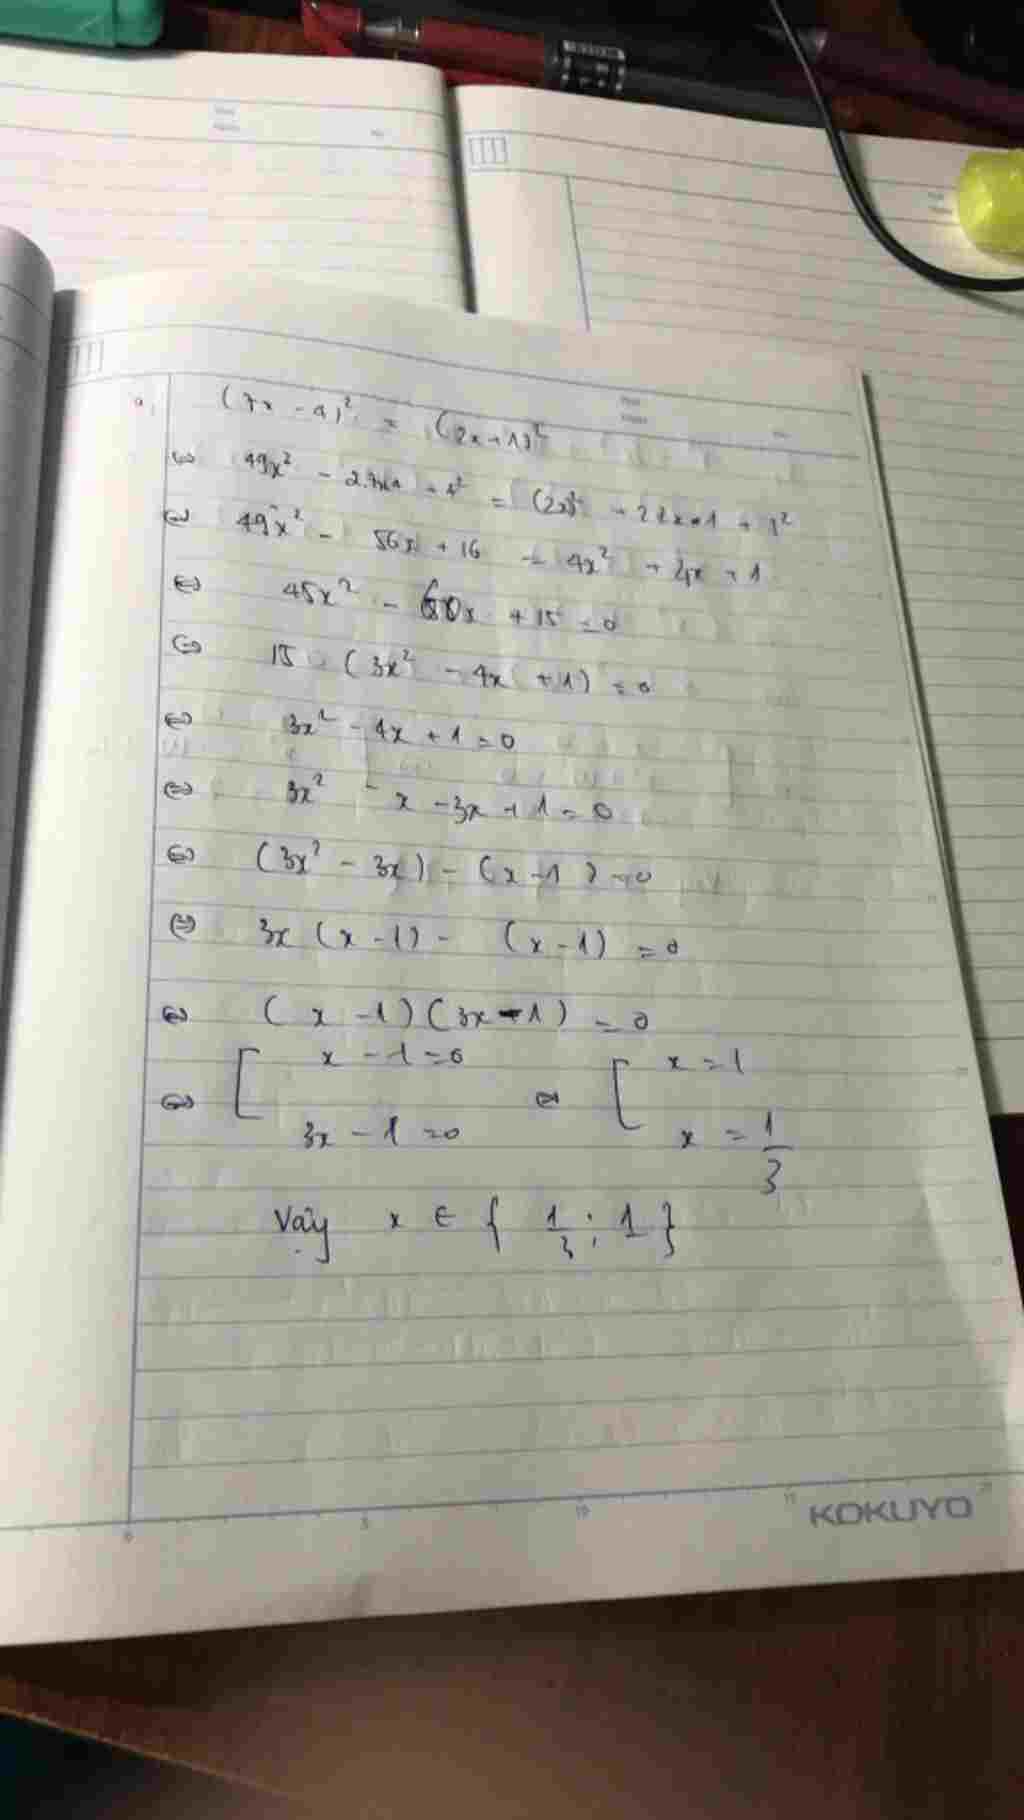 a,
(7x - 4)² = (2x + 1)²
⇔ 49x² - 2.7x.4 + 4² = (2x)² + 2.2x.1 + 1²
⇔ 49x² - 56x + 16 = 4x² + 4x + 1
⇔ 45x² - 60x + 15 = 0
⇔ 15 (3x² - 4x + 1) = 0
⇔ 3x² - 4x + 1 = 0
⇔ 3x² - x - 3x + 1 = 0
⇔ (3x² - 3x) - (x - 1) = 0
⇔ 3x (x - 1) - (x - 1) = 0
⇔ (x - 1)(3x - 1) = 0
⇔ [ x - 1 = 0 ⇔ [ x = 1
3x - 1 = 0 x = 1/3
Vậy x ∈ { 1/3 ; 1 }
0 5 10 15 20
KOKUYO